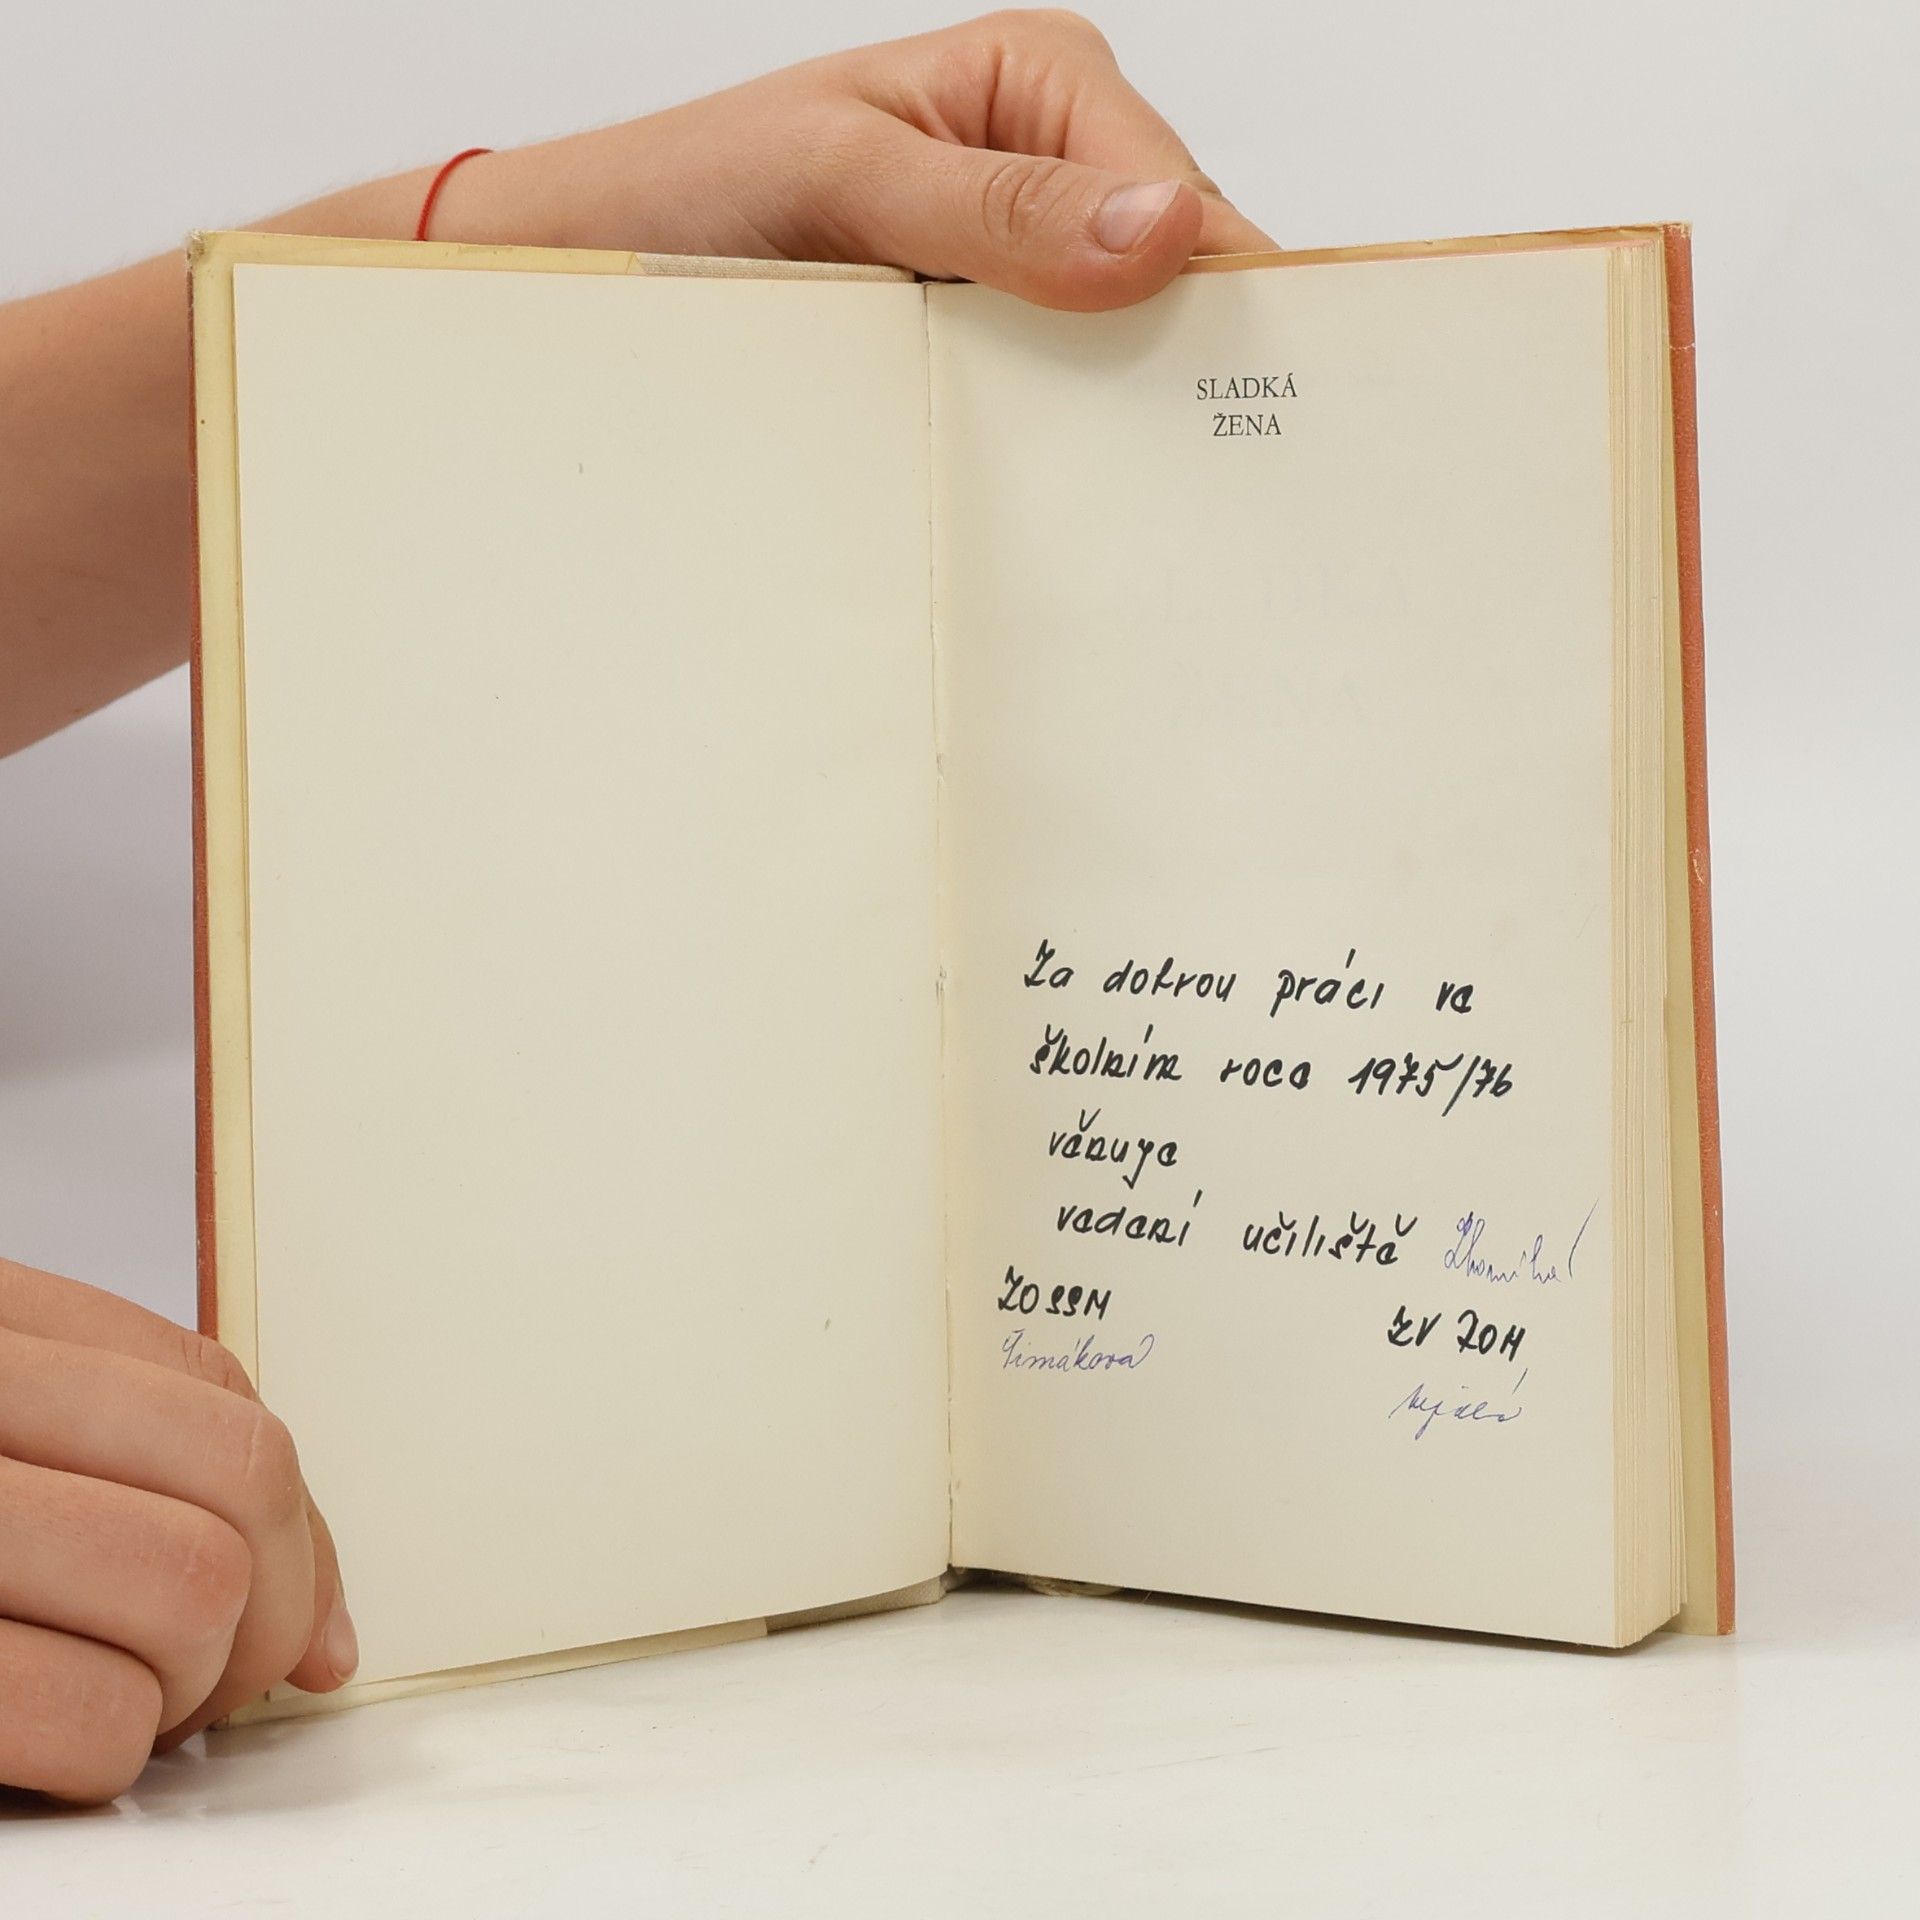 SLADKÁ
ŽENA
Za dobrou práci ve
školním roce 1975/76
věnuje
vedení učiliště
ZO SSM
ZV ROH
Šimáková